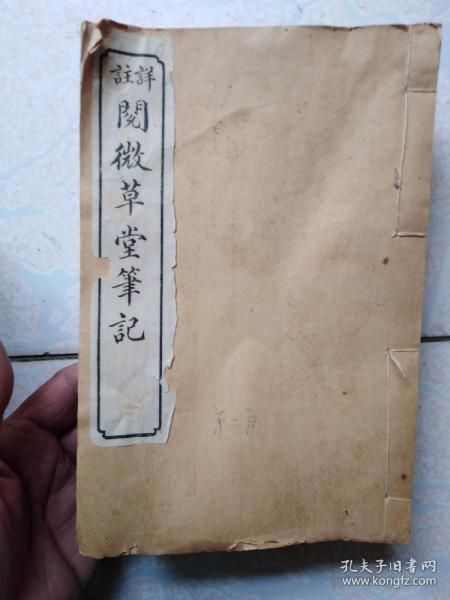 詳註
閱微草堂筆記
孔夫子旧书网
www.kongfz.com